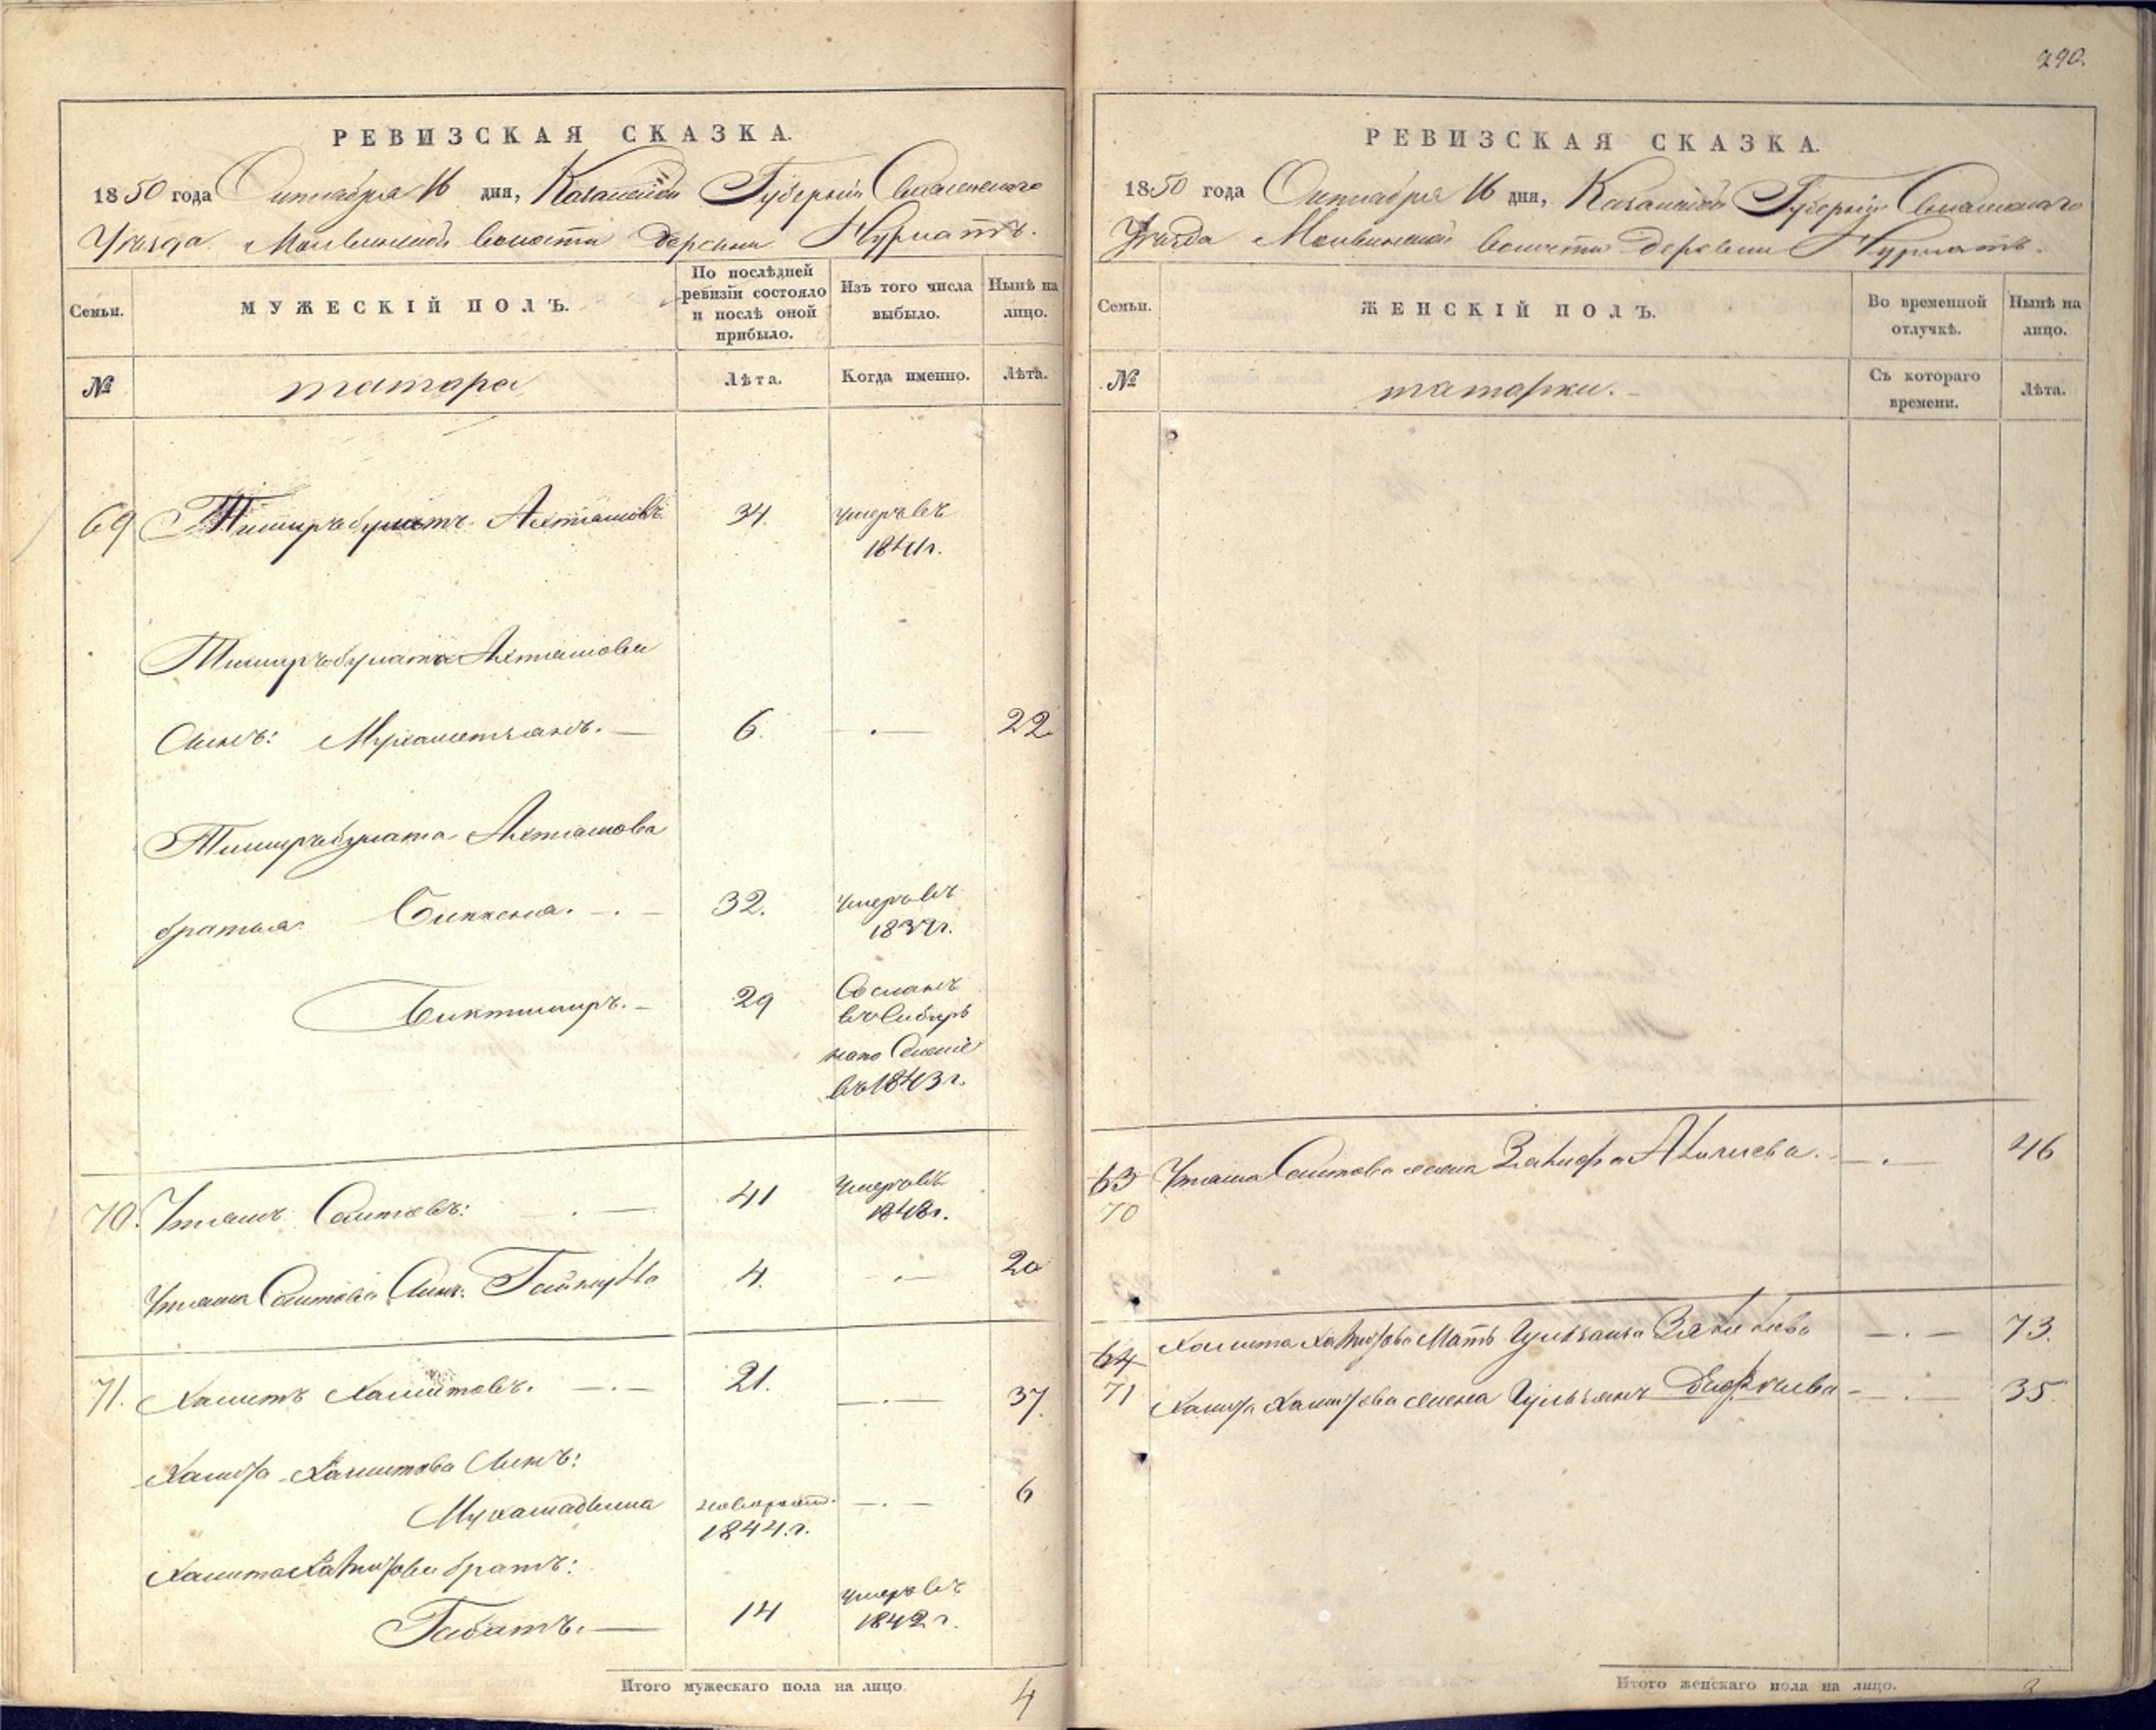 290.
РЕВИЗСКАЯ СКАЗКА.
1850 года Октября 16 дня, Казанской Губернiи Свiяжскаго
Уезда Молвинской волости деревни Нурлатъ.
Семьи.
МУЖЕСКIЙ ПОЛЪ.
По послѣдней ревизiи состояло и послѣ оной прибыло.
Изъ того числа выбыло.
Нынѣ на лицо.
№
татара
Лѣта.
Когда именно.
Лѣта.
69 Тимиръбулатъ Ахтямовъ 34. умеръ въ 1841 г.
Тимиръбулата Ахтямова
Сынъ: Мухаметзянъ. 6. 22
Тимиръбулата Ахтямова
братья 32. умеръ въ
Биктимиръ. 29 Сосланъ
въ Сибирь
на поселенiе
въ 1843 г.
70. Утяшъ Саитовъ: 41 умеръ въ 1848 г.
Утяша Саитова Сынъ: 4. 20
71. Хамитъ Хамитовъ. 21. 37.
Хамита Хамитова Сынъ:
новорожд. 1844. г. 6
Хамита братъ:
Габатъ. 14 умеръ въ 1842 г.
Итого мужескаго пола на лицо. 4
РЕВИЗСКАЯ СКАЗКА.
1850 года Октября 16 дня, Казанской Губернiи Свiяжскаго
Уезда Молвинской волости деревни Нурлатъ.
Семьи.
ЖЕНСКIЙ ПОЛЪ.
Во временной отлучкѣ.
Нынѣ на лицо.
№
татарки.
Съ котораго времени.
Лѣта.
63 Утяша Саитова жена 46
70
64 Хамита мать 73.
71 Хамита Хамитова жена 35.
Итого женскаго пола на лицо. 3